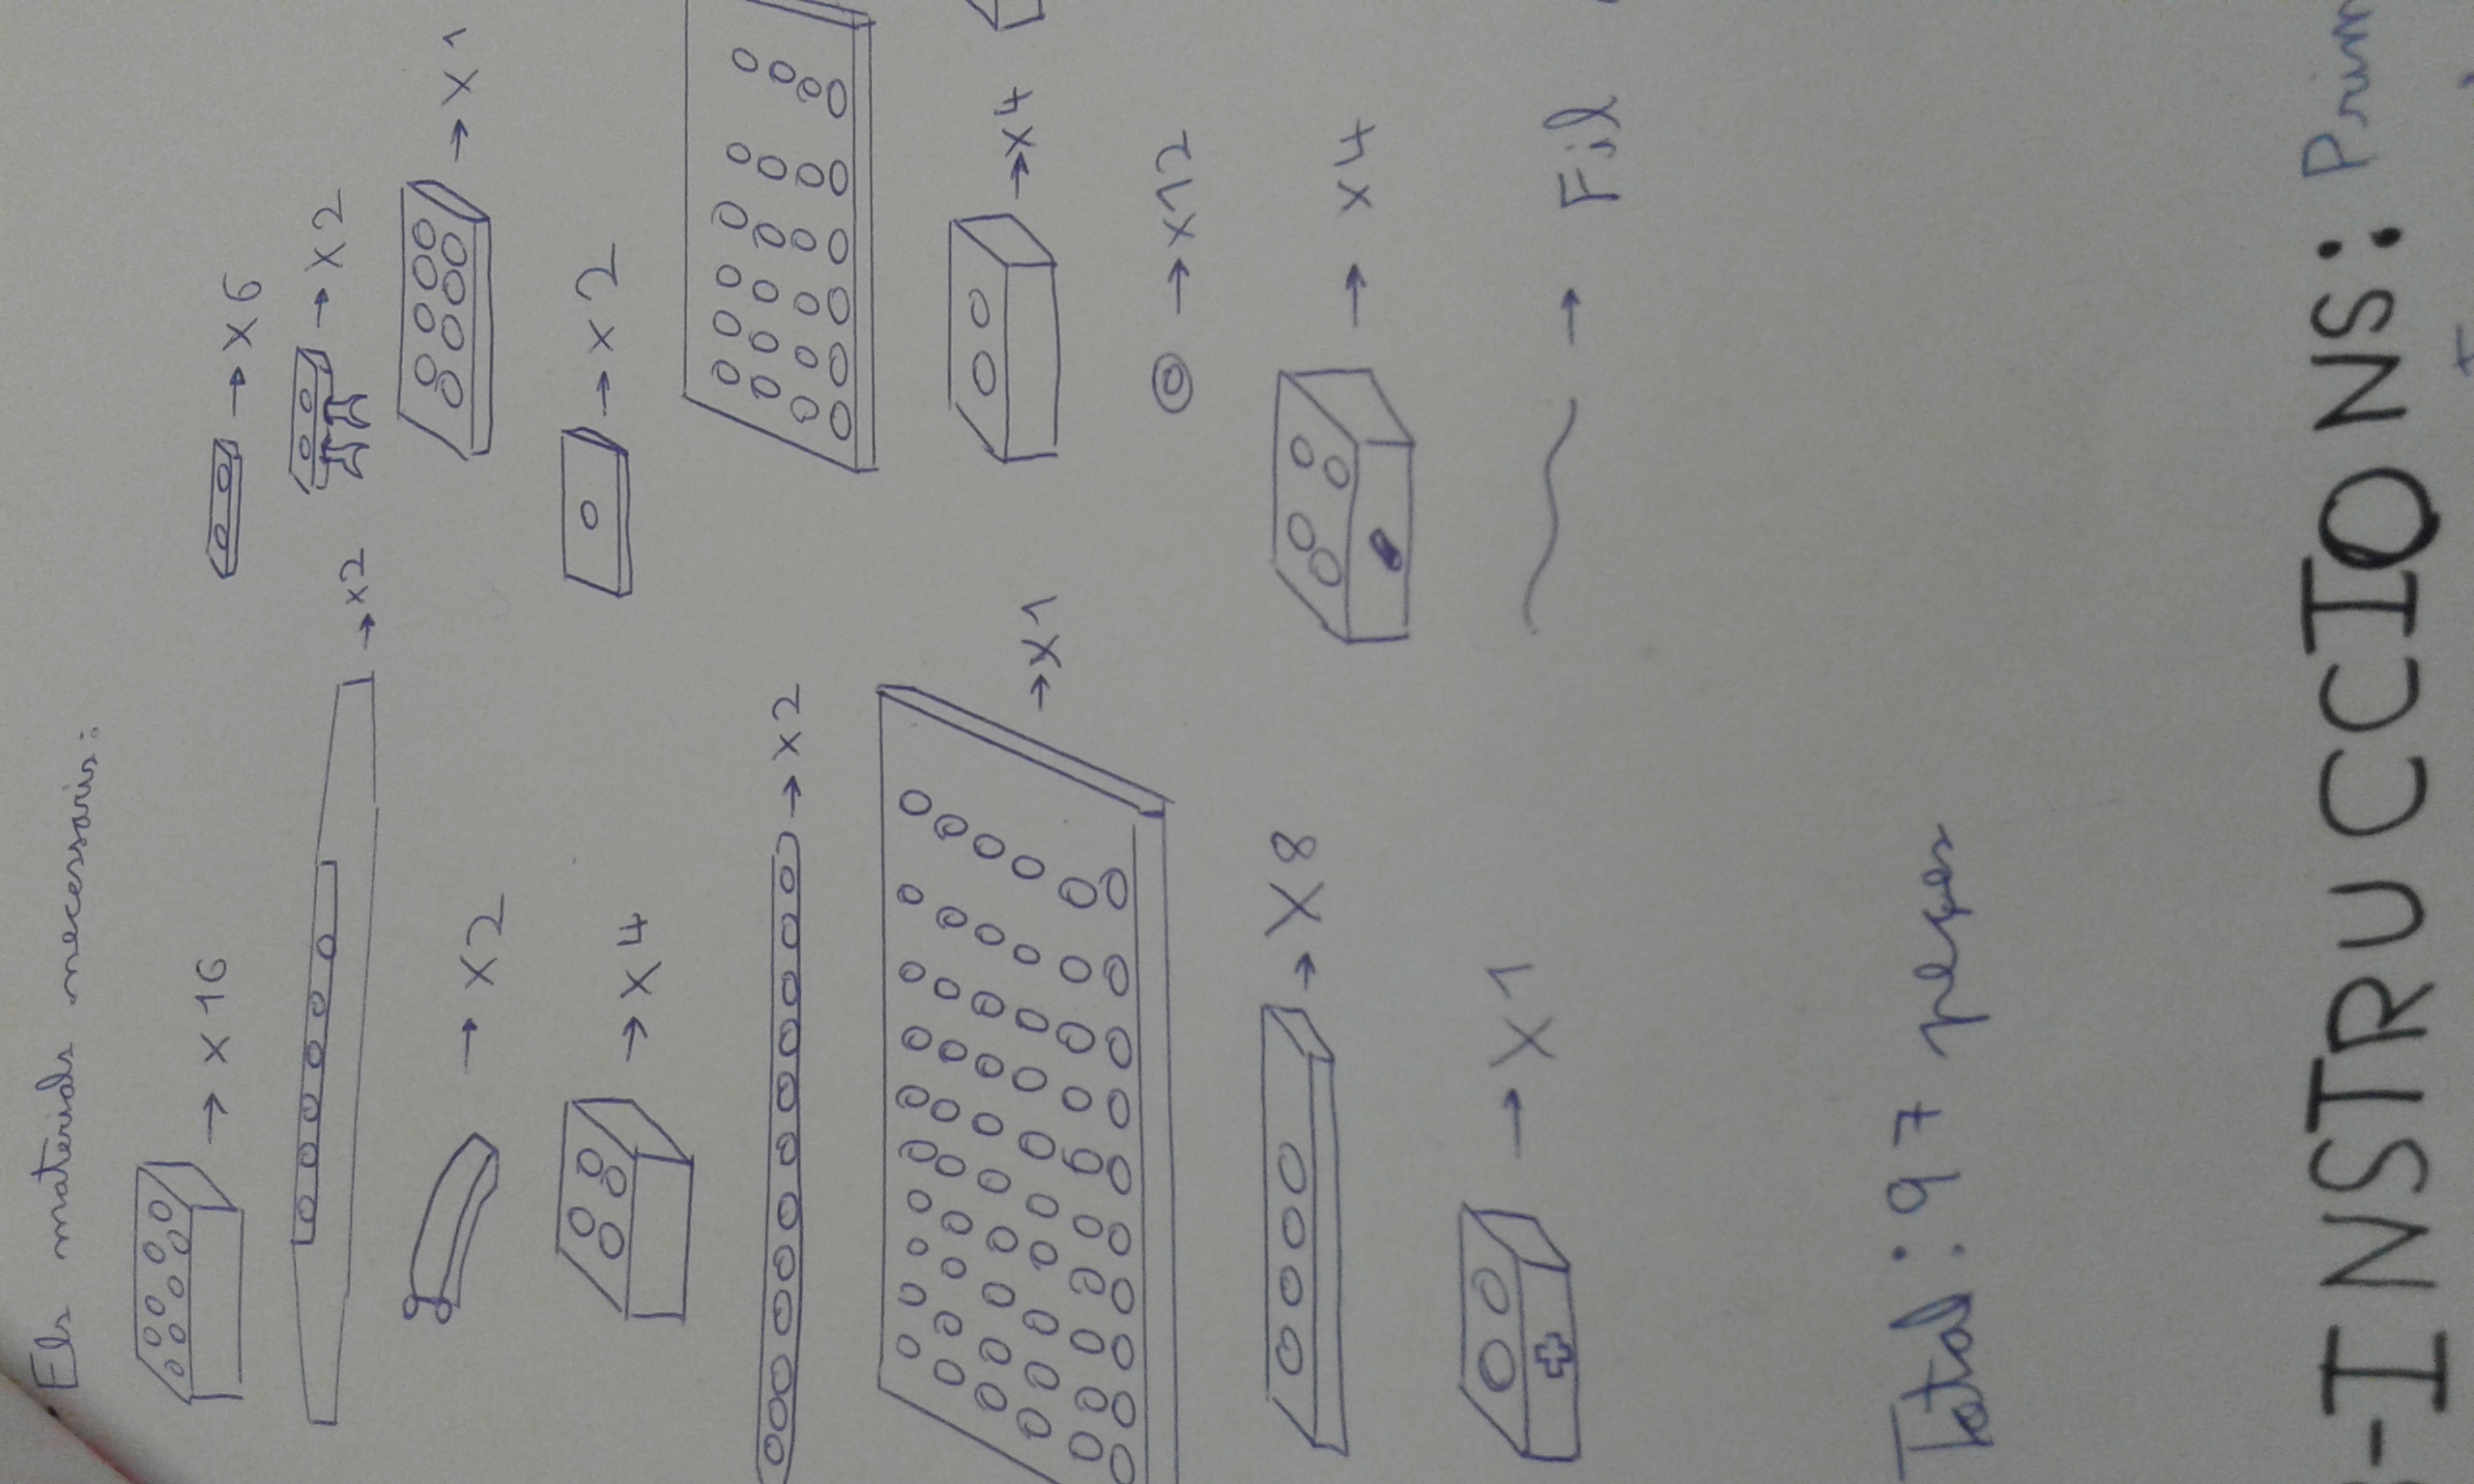 Els materials necessaris:
→ x 16
→ x 6
→ x2
→ x 2
→ x 2
→ x 1
→ x 4
→ x 2
→ x 2
→ x1
→ x4
→ x12
→ x 8
→ x 4
→ x 1
→ Fil
Total: 97 peses
-INSTRUCCIONS: Prim